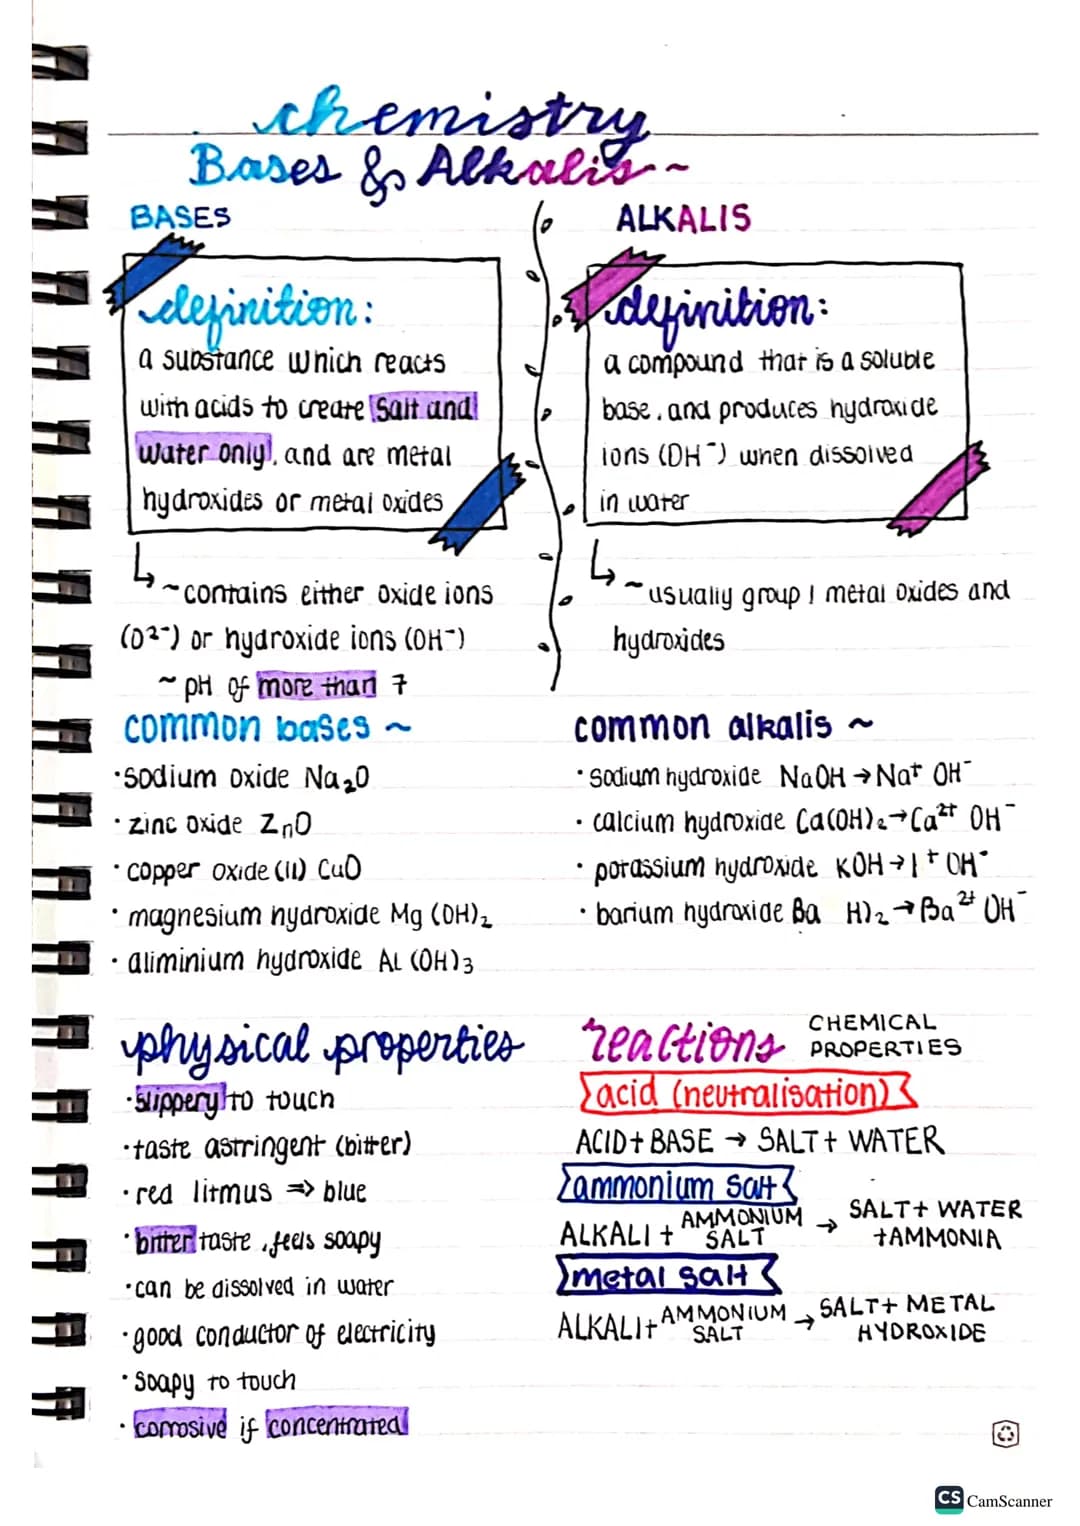 chemistry
Bases & Alkalis~
BASES
definition:
a substance which reacts
with acids to create salt and
water only, and are metal
hydroxides or metal oxides
~contains either oxide ions
(O²⁻) or hydroxide ions (OH⁻)
~ pH of more than 7
ALKALIS
definition:
a compound that is a soluble
base, and produces hydroxide
ions (OH⁻) when dissolved
in water
~usually group 1 metal oxides and
hydroxides
common bases ~
·sodium oxide Na₂O
·zinc oxide ZnO
·copper oxide (II) CuO
·magnesium hydroxide Mg (OH)₂
·aliminium hydroxide AL (OH)₃
common alkalis ~
·sodium hydroxide NaOH → Na⁺ OH⁻
·calcium hydroxide Ca(OH)₂ → Ca²⁺ OH⁻
·potassium hydroxide KOH → I⁺ OH⁻
·barium hydroxide Ba H)₂ → Ba²⁺ OH⁻
physical properties
·slippery to touch
·taste astringent (bitter)
·red litmus ⇒ blue
·bitter taste, feels soapy
·can be dissolved in water
·good conductor of electricity
·soapy to touch
·corrosive if concentrated
reactions CHEMICAL
PROPERTIES
acid (neutralisation)
ACID + BASE → SALT + WATER
ammonium salt
ALKALI + AMMONIUM SALT → SALT + WATER
+AMMONIA
metal salt
ALKALI + AMMONIUM SALT → SALT + METAL
HYDROXIDE
CS CamScanner